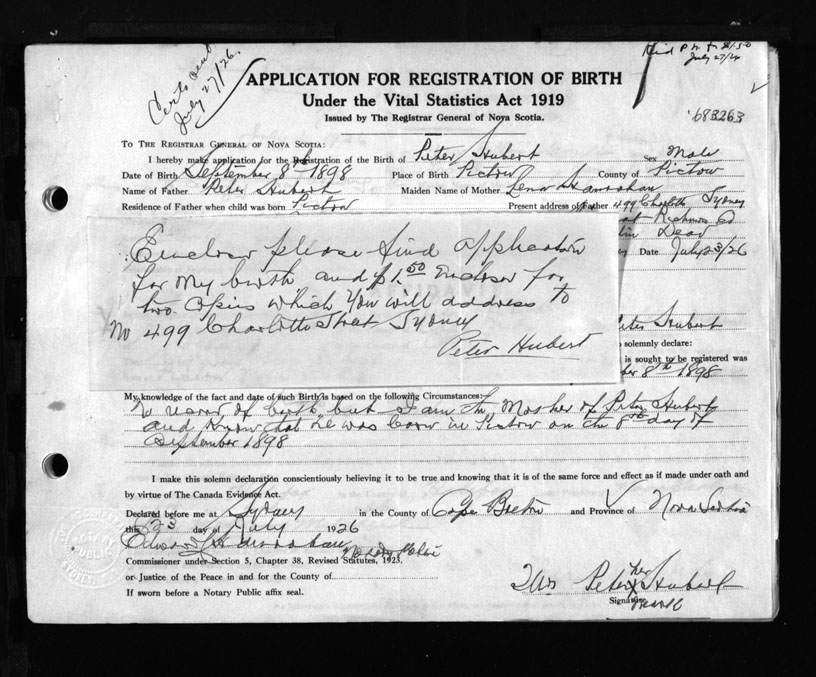 Certs sent
July 27/26.
July 27/26
APPLICATION FOR REGISTRATION OF BIRTH
Under the Vital Statistics Act 1919
Issued by The Registrar General of Nova Scotia.
683263
TO THE REGISTRAR GENERAL OF NOVA SCOTIA:
I hereby make application for the Registration of the Birth of Peter Hubert Sex Male
Date of Birth September 8th 1898 Place of Birth Pictou County of Pictou
Name of Father Peter Hubert Maiden Name of Mother Lena Hanrahan
Residence of Father when child was born Pictou Present address of Father 499 Charlotte Sydney
Dead
Date July 23/26
Enclose please find application
for my birth and $1.50 Enclose for
two copies which you will address to
No 499 Charlotte Street Sydney
Peter Hubert
Peter Hubert
solemnly declare:
is sought to be registered was
8th 1898
My knowledge of the fact and date of such Birth is based on the following Circumstances:
No record of birth but I am the Mother of Peter Hubert
and know that he was born in Pictou on the 8th day of
September 1898
I make this solemn declaration conscientiously believing it to be true and knowing that it is of the same force and effect as if made under oath and
by virtue of The Canada Evidence Act.
Declared before me at Sydney in the County of Cape Breton and Province of Nova Scotia
this day of July 1926
Commissioner under Section 5, Chapter 38, Revised Statutes, 1923.
or Justice of the Peace in and for the County of
If sworn before a Notary Public affix seal.
Mrs Peter her Hubert
Signature mark